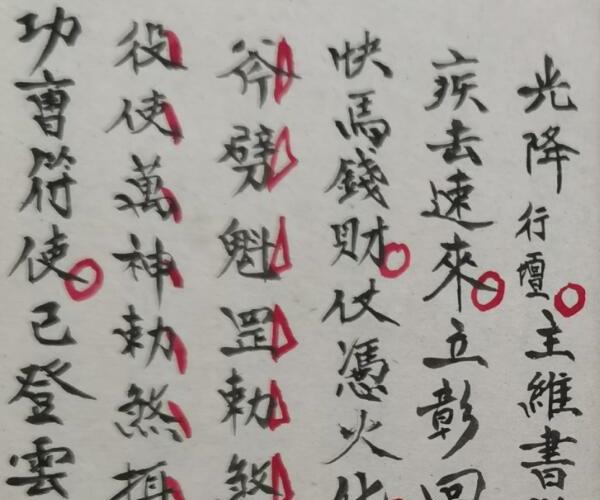 光降行壇主維書
疾去速來立彰回
快馬錢財仗憑火化
斧劈魁罡勅煞
役使萬神勅煞
功曹符使已登雲